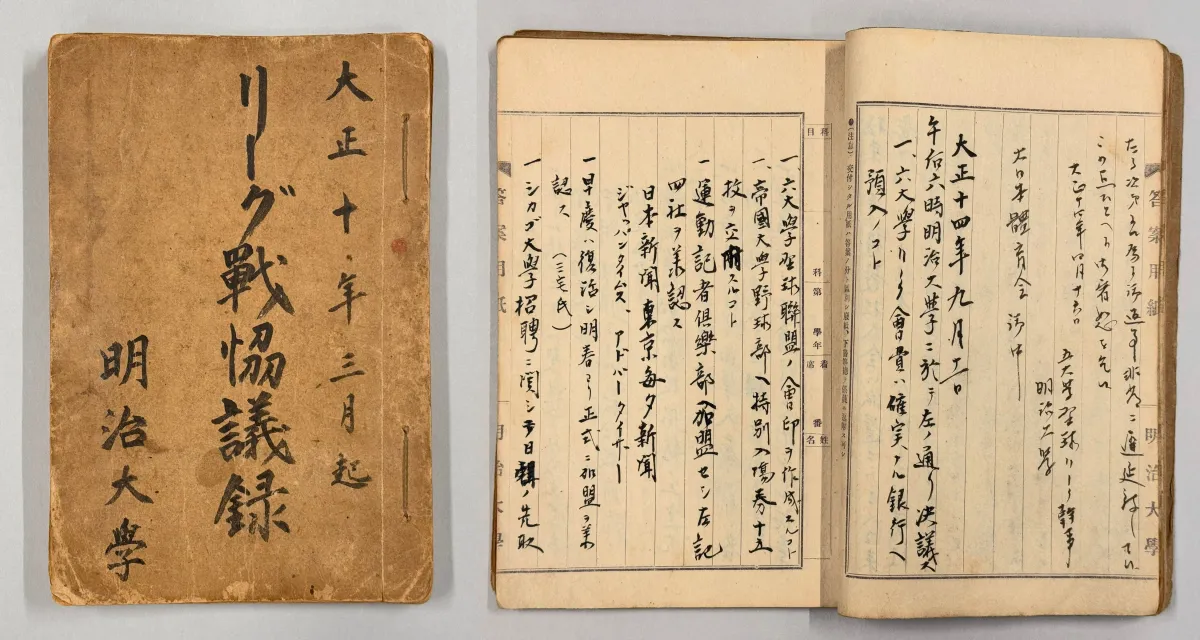 大正十年三月起
リーグ戰協議録
明治大學
この点あしからず御宥恕を乞ふ
大正十四年四月十六日
五大學野球リーグ幹事
明治大學
大日本體育会 御中
大正十四年九月十一日
午后六時明治大學ニ於テ左ノ通リ決議ス
一、六大學リーグ會費ハ確実ナル銀行ヘ
預入ノコト
答案用紙
明治大學
科目
科第 學年
着席 番
姓名
一、六大學野球聯盟ノ會印ヲ作成スルコト
一、帝國大學野球部ヘ特別入場券十五
枚ヲ交附スルコト
一 運動記者倶樂部ヘ加盟セシ左記
四社ヲ承認ス
日本新聞 東京毎夕新聞
ジャッパンタイムス、アドバータイザー
一 早慶ハ復活シ明春ヨリ正式ニ加盟ヲ承
認ス (三宅氏)
一 シカゴ大學招聘ニ関シテ日ノ先取